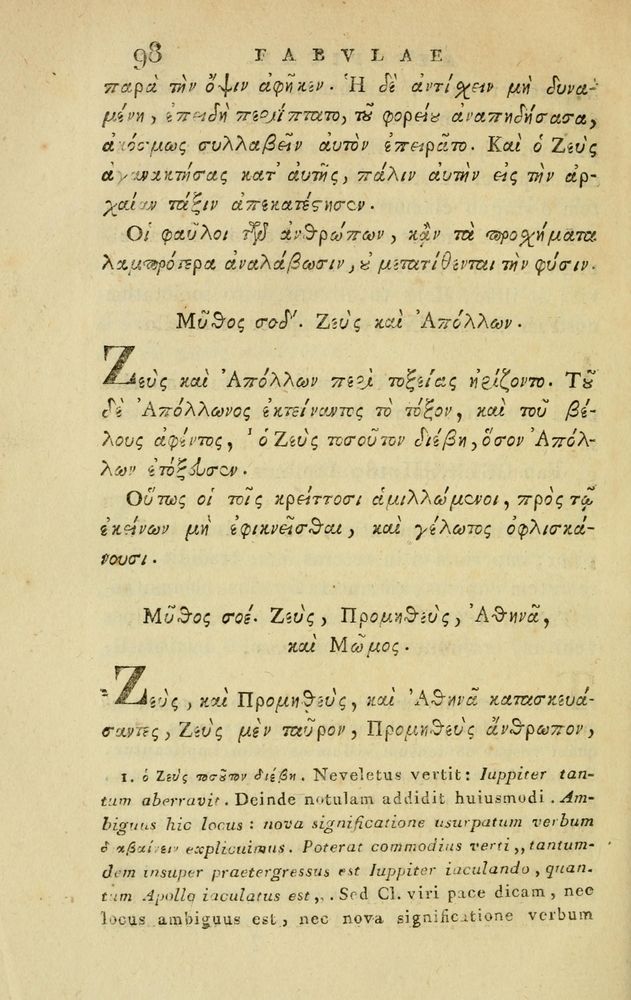 98 FABVLAE
παρὰ τὴν ὄψιν ἀφῆκεν. Ἡ δὲ ἀντέχειν μὴ δυνα-
μένη, ἐπειδὴ περιίπτατο, τοῦ φορείου ἀναπηδήσασα,
ἀκόσμως συλλαβεῖν αὐτὸν ἐπειρᾶτο. Καὶ ὁ Ζεὺς
ἀγανακτήσας κατ' αὐτῆς, πάλιν αὐτὴν εἰς τὴν ἀρ-
χαίαν τάξιν ἀπεκατέστησεν.
Οἱ φαῦλοι τῶν ἀνθρώπων, κἂν τὰ προσχήματα
λαμπρότερα ἀναλάβωσιν, οὐ μετατίθενται τὴν φύσιν.
Μῦθος σοδ'. Ζεὺς καὶ Ἀπόλλων.
Ζεὺς καὶ Ἀπόλλων περὶ τοξείας ἠρίζοντο. Τοῦ
δὲ Ἀπόλλωνος ἐκτείναντος τὸ τόξον, καὶ τοῦ βέ-
λους ἀφέντος, ¹ ὁ Ζεὺς τοσοῦτον διέβη, ὅσον Ἀπόλ-
λων ἐτόξευσεν.
Οὕτως οἱ τοῖς κρείττοσι ἁμιλλώμενοι, πρὸς τῷ
ἐκείνων μὴ ἐφικνεῖσθαι, καὶ γέλωτος ὀφλισκά-
νουσι.
Μῦθος σοέ. Ζεὺς, Προμηθεὺς, Ἀθηνᾶ,
καὶ Μῶμος.
Ζεὺς, καὶ Προμηθεὺς, καὶ Ἀθηνᾶ κατασκευά-
σαντες, Ζεὺς μὲν ταῦρον, Προμηθεὺς ἄνθρωπον,
1. ὁ Ζεὺς τοσοῦτον διέβη. Neveletus vertit: Iuppiter tan-
tum aberravit. Deinde notulam addidit huiusmodi. Am-
biguus hic locus: nova significatione usurpatum verbum
διαβαίνειν explicuimus. Poterat commodius verti ,,tantum-
dem insuper praetergressus est Iuppiter iaculando, quan-
tum Apollo iaculatus est,,. Sed Cl. viri pace dicam, nec
locus ambiguus est, nec nova significatione verbum